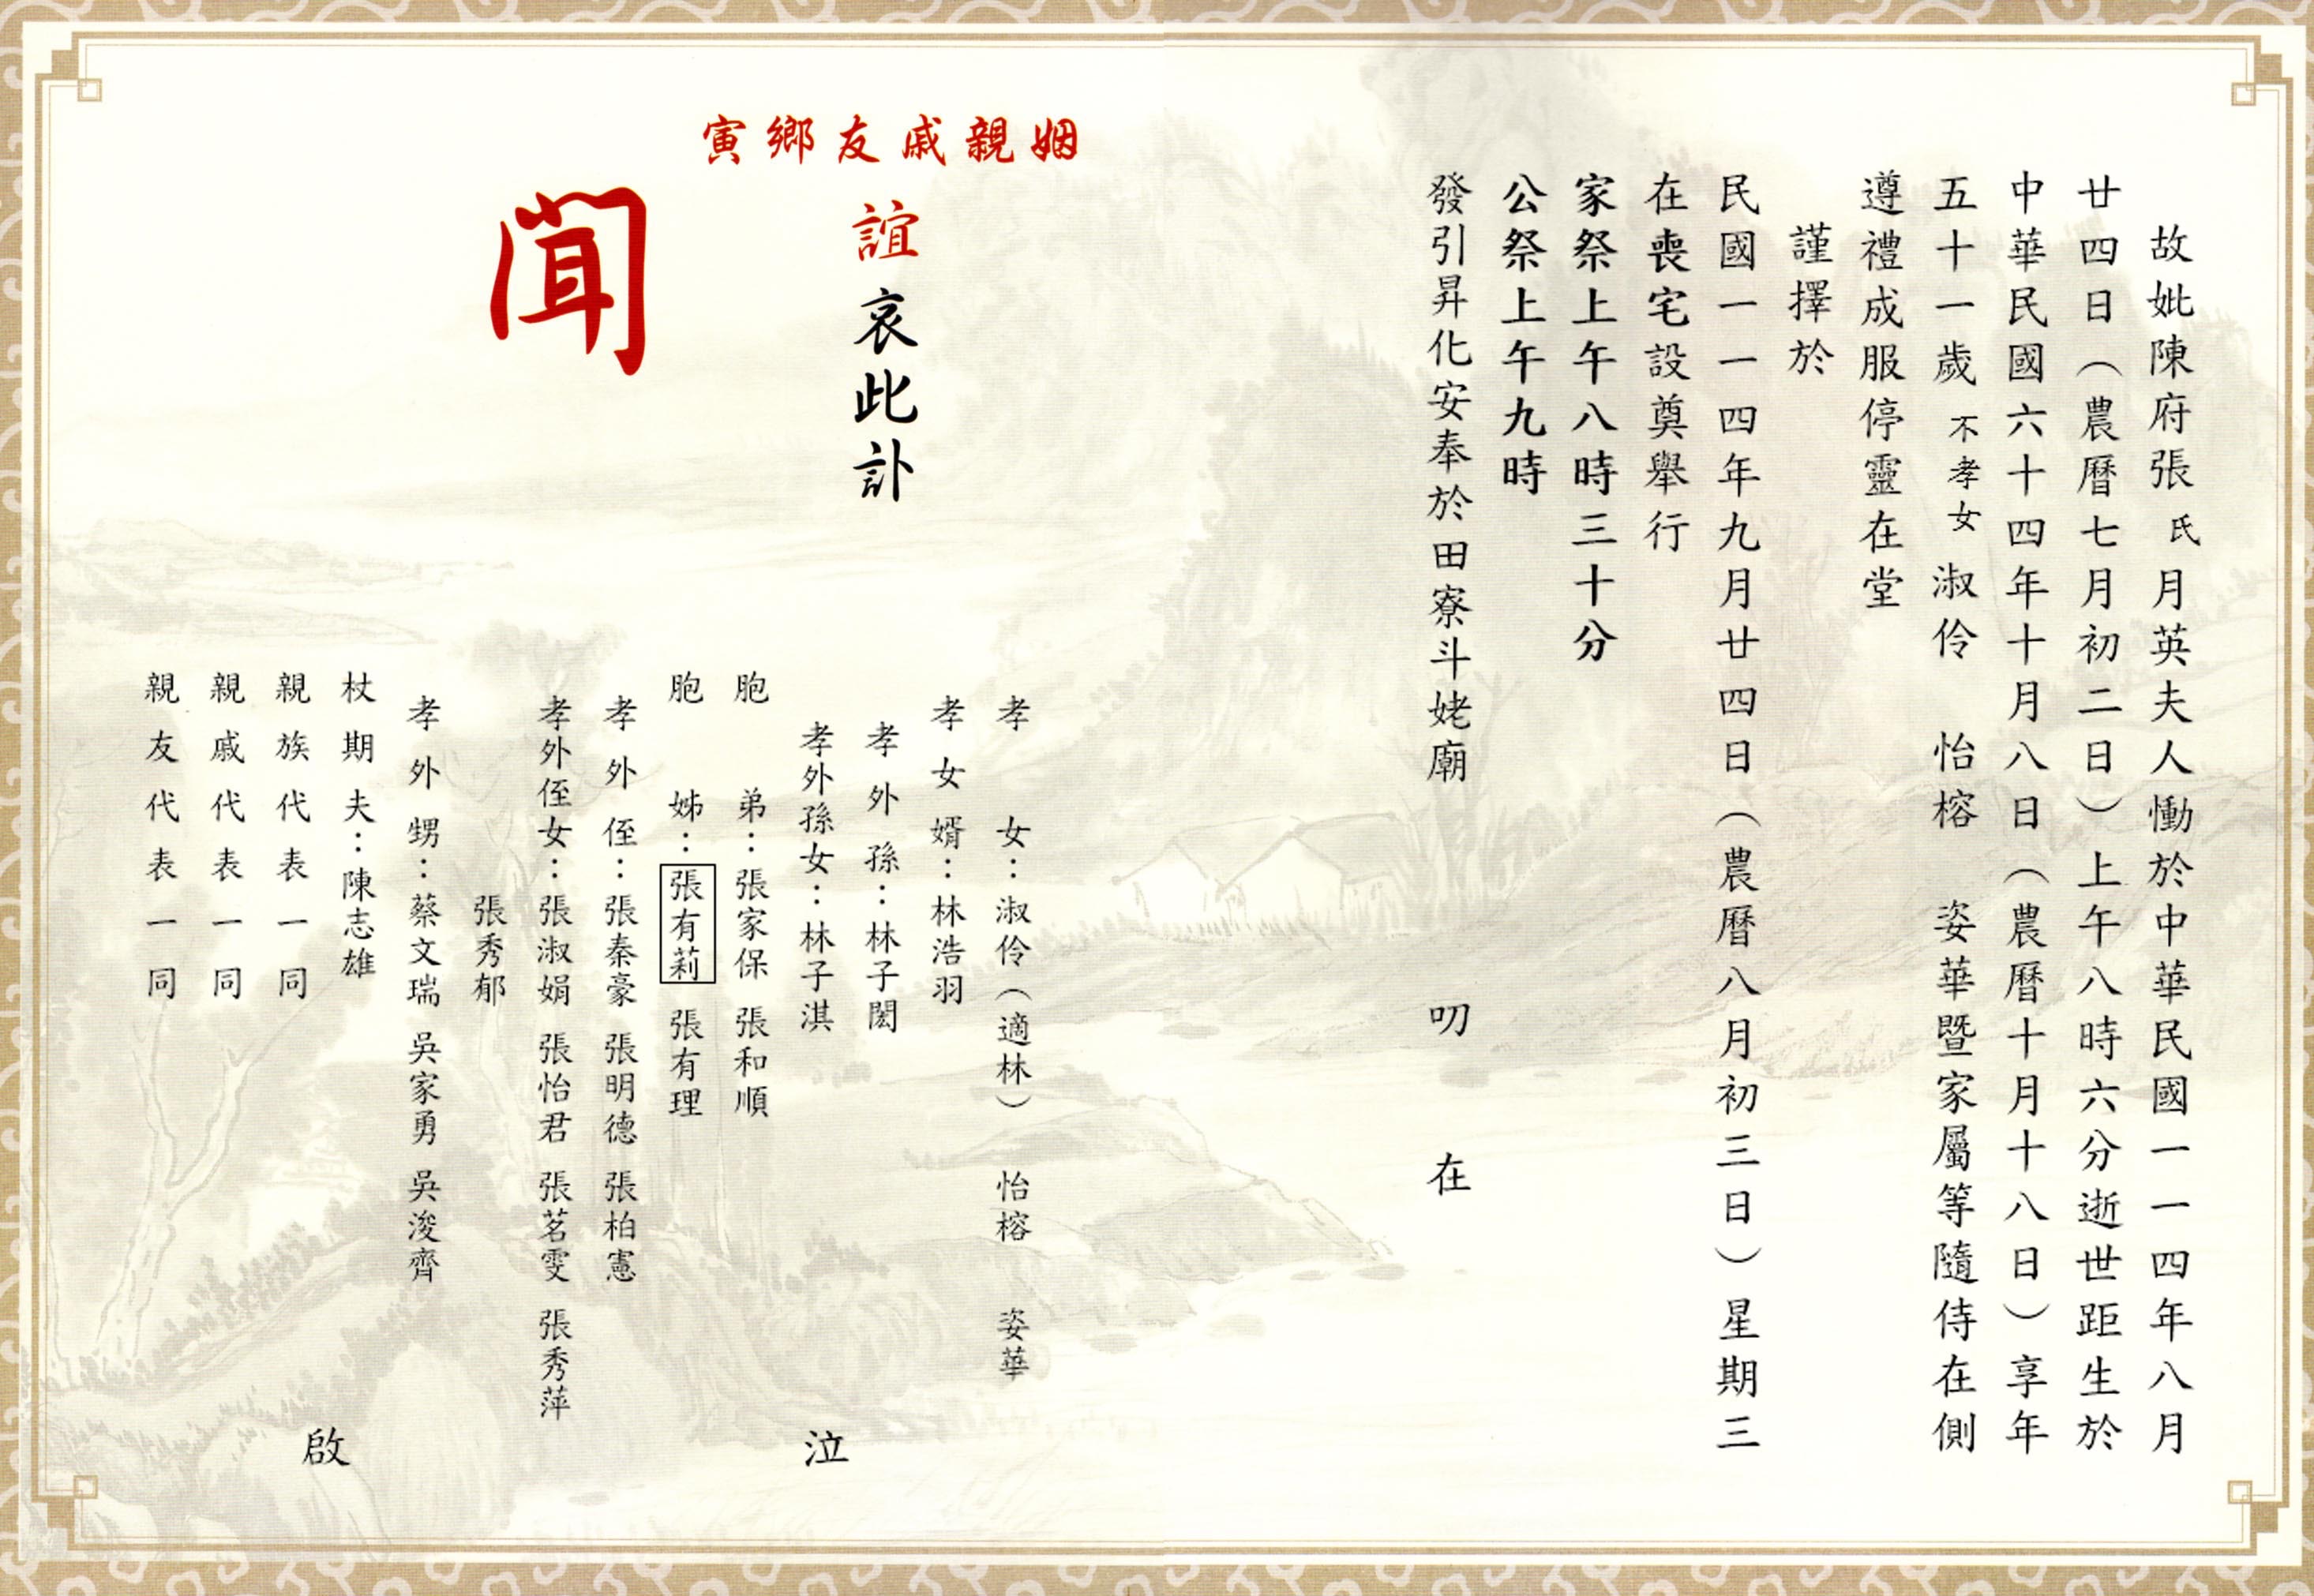 故妣陳府張氏月英夫人慟於中華民國一一四年八月
廿四日（農曆七月初二日）上午八時六分逝世距生於
中華民國六十四年十月八日（農曆十月十八日）享年
五十一歲不孝女淑伶 怡榕 姿華暨家屬等隨侍在側
遵禮成服停靈在堂
謹擇於
民國一一四年九月廿四日（農曆八月初三日）星期三
在喪宅設奠舉行
家祭上午八時三十分
公祭上午九時
發引昇化安奉於田寮斗姥廟 叨 在
姻親戚友鄉寅
誼哀此訃
聞
孝女：淑伶（適林） 怡榕 姿華
孝女婿：林浩羽
孝外孫：林子閎
孝外孫女：林子淇
胞弟：張家保 張和順
胞姊：張有莉 張有理
孝外侄：張秦豪 張明德 張柏憲
孝外侄女：張淑娟 張怡君 張茗雯 張秀萍
張秀郁
孝外甥：蔡文瑞 吳家勇 吳浚齊
杖期夫：陳志雄
親族代表一同
親戚代表一同
親友代表一同
泣
啟